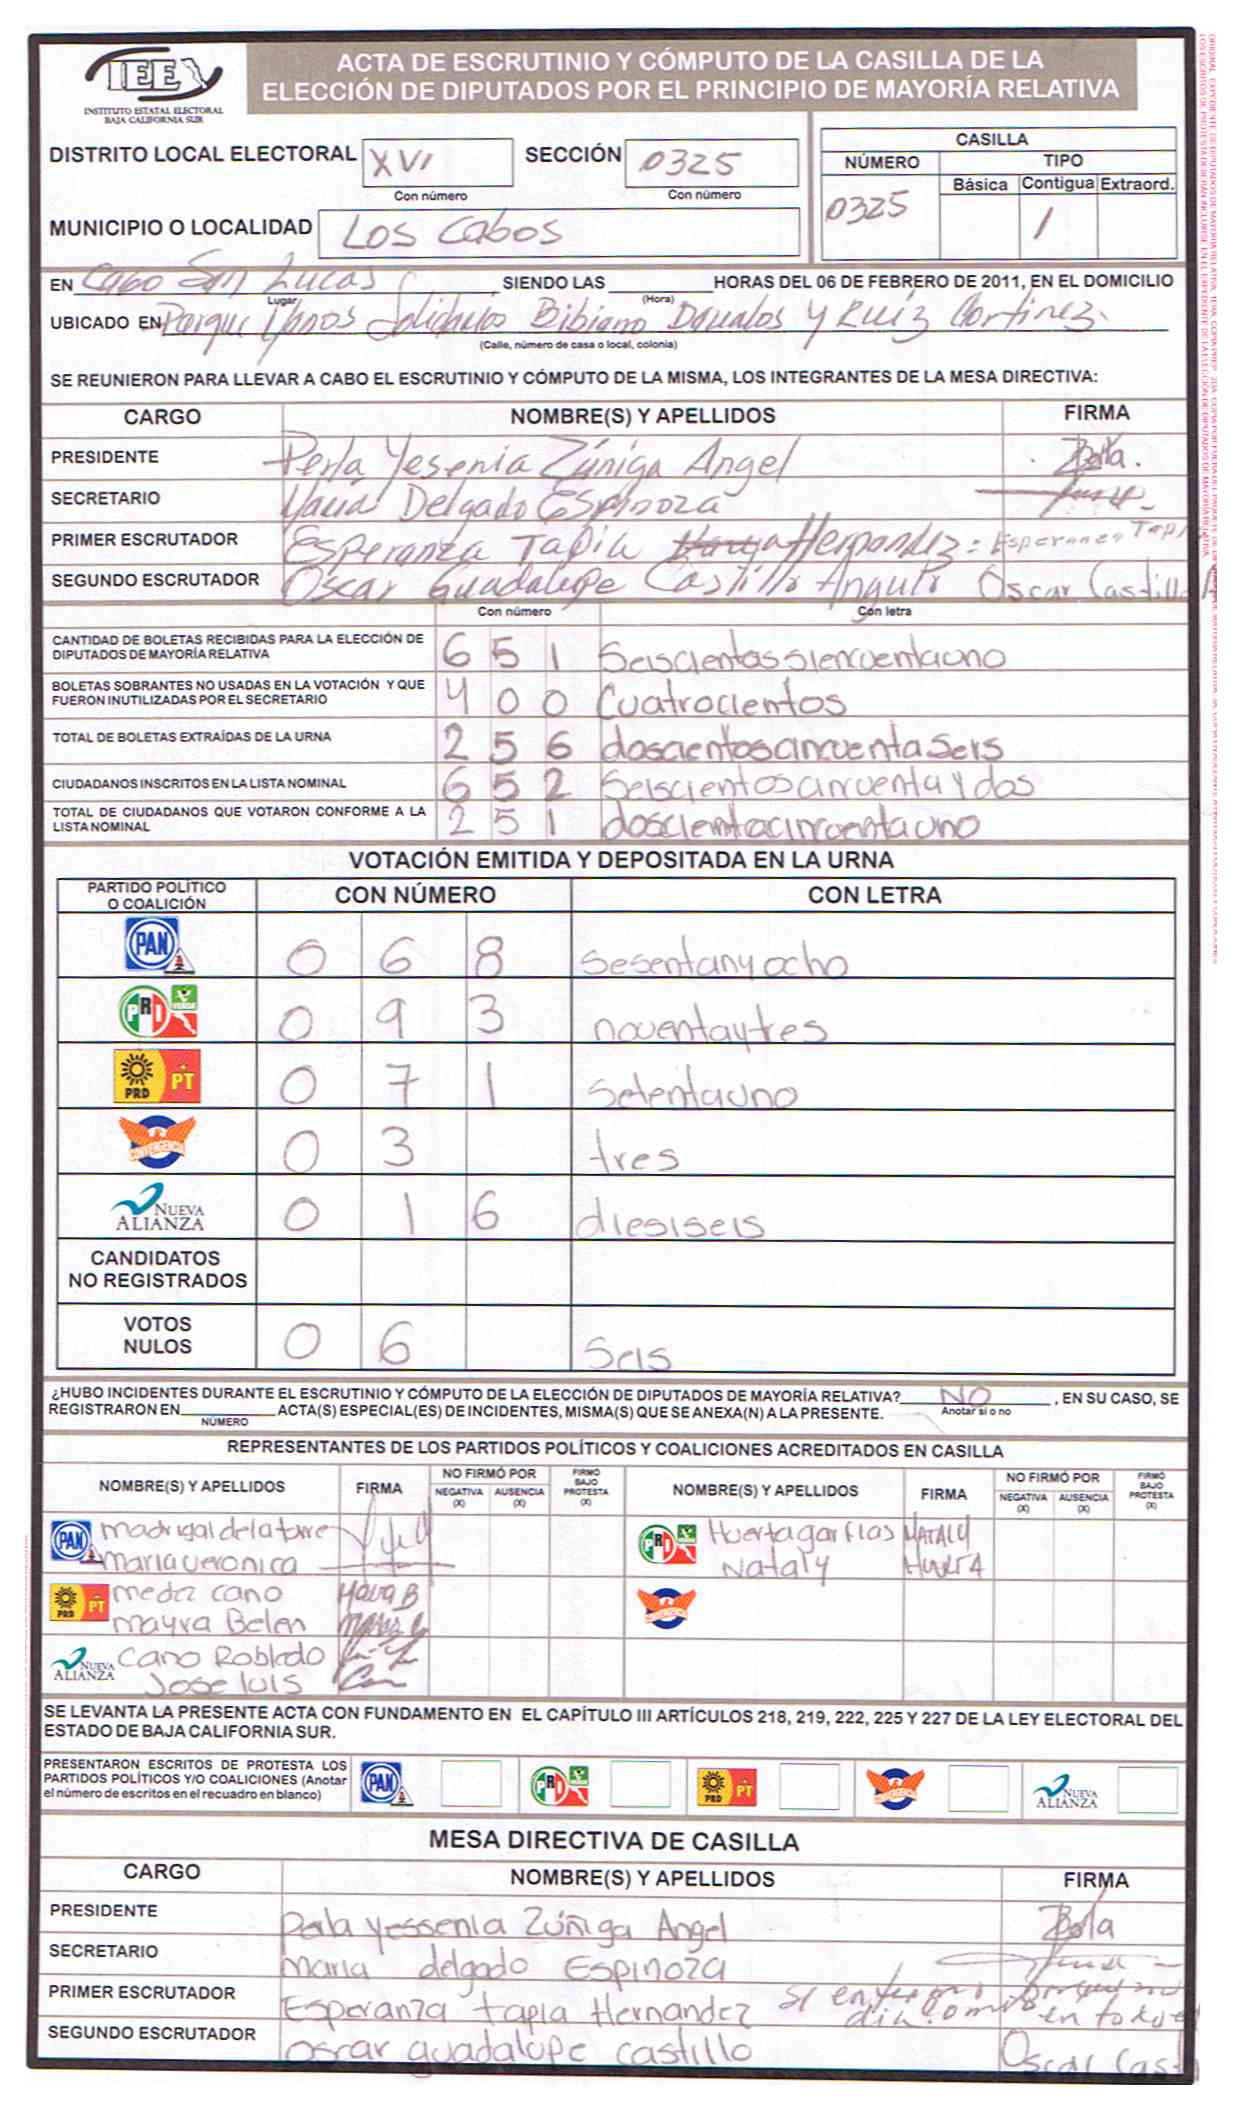 IEE
INSTITUTO ESTATAL ELECTORAL
BAJA CALIFORNIA SUR
ACTA DE ESCRUTINIO Y CÓMPUTO DE LA CASILLA DE LA
ELECCIÓN DE DIPUTADOS POR EL PRINCIPIO DE MAYORÍA RELATIVA
DISTRITO LOCAL ELECTORAL XVI SECCIÓN 0325
Con número Con número
MUNICIPIO O LOCALIDAD LOS CABOS
CASILLA
NÚMERO TIPO
Básica Contigua Extraord.
0325 1
EN Cabo San Lucas SIENDO LAS HORAS DEL 06 DE FEBRERO DE 2011, EN EL DOMICILIO
Lugar (Hora)
UBICADO EN Parque Bibiano Davalos y Ruíz Cortinez
(Calle, número de casa o local, colonia)
SE REUNIERON PARA LLEVAR A CABO EL ESCRUTINIO Y CÓMPUTO DE LA MISMA, LOS INTEGRANTES DE LA MESA DIRECTIVA:
CARGO NOMBRE(S) Y APELLIDOS FIRMA
PRESIDENTE Perla Yesenia Zúniga Angel
SECRETARIO Maria Delgado Espinoza
PRIMER ESCRUTADOR Esperanza Tapia Hernandez Esperanza Tapi
SEGUNDO ESCRUTADOR Oscar Guadalupe Castillo Angulo Oscar Castillo A
Con número Con letra
CANTIDAD DE BOLETAS RECIBIDAS PARA LA ELECCIÓN DE
DIPUTADOS DE MAYORÍA RELATIVA 6 5 1 Seiscientossiencuentauno
BOLETAS SOBRANTES NO USADAS EN LA VOTACIÓN Y QUE
FUERON INUTILIZADAS POR EL SECRETARIO 4 0 0 Cuatrocientos
TOTAL DE BOLETAS EXTRAÍDAS DE LA URNA 2 5 6 doscientoscincuentaseis
CIUDADANOS INSCRITOS EN LA LISTA NOMINAL 6 5 2 Seiscientoscincuenta y dos
TOTAL DE CIUDADANOS QUE VOTARON CONFORME A LA
LISTA NOMINAL 2 5 1 doscientacincuentauno
VOTACIÓN EMITIDA Y DEPOSITADA EN LA URNA
PARTIDO POLÍTICO
O COALICIÓN CON NÚMERO CON LETRA
PAN 0 6 8 sesentanyocho
PRD VERDE 0 9 3 noventaytres
PRD PT 0 7 1 Setentauno
CONVERGENCIA 0 3 tres
NUEVA ALIANZA 0 1 6 diesiseis
CANDIDATOS
NO REGISTRADOS
VOTOS
NULOS 0 6 Seis
¿HUBO INCIDENTES DURANTE EL ESCRUTINIO Y CÓMPUTO DE LA ELECCIÓN DE DIPUTADOS DE MAYORÍA RELATIVA? NO , EN SU CASO, SE
Anotar sí o no
REGISTRARON EN ACTA(S) ESPECIAL(ES) DE INCIDENTES, MISMA(S) QUE SE ANEXA(N) A LA PRESENTE.
NÚMERO
REPRESENTANTES DE LOS PARTIDOS POLÍTICOS Y COALICIONES ACREDITADOS EN CASILLA
NOMBRE(S) Y APELLIDOS FIRMA NO FIRMÓ POR NEGATIVA (X) AUSENCIA (X) FIRMÓ BAJO PROTESTA (X)
NOMBRE(S) Y APELLIDOS FIRMA NO FIRMÓ POR NEGATIVA (X) AUSENCIA (X) FIRMÓ BAJO PROTESTA (X)
PAN madrigal de la torre
maria veronica
PRD VERDE Huerta garfias NATALY
Nataly HUERTA
PRD PT meda cano
mayra Belen
CONVERGENCIA
NUEVA ALIANZA Cano Robledo
Jose luis
SE LEVANTA LA PRESENTE ACTA CON FUNDAMENTO EN EL CAPÍTULO III ARTÍCULOS 218, 219, 222, 225 Y 227 DE LA LEY ELECTORAL DEL
ESTADO DE BAJA CALIFORNIA SUR.
PRESENTARON ESCRITOS DE PROTESTA LOS
PARTIDOS POLÍTICOS Y/O COALICIONES (Anotar
el número de escritos en el recuadro en blanco)
PAN PRD VERDE PRD PT CONVERGENCIA NUEVA ALIANZA
MESA DIRECTIVA DE CASILLA
CARGO NOMBRE(S) Y APELLIDOS FIRMA
PRESIDENTE Perla yessenia Zúñiga Angel
SECRETARIO maria delgado Espinoza
PRIMER ESCRUTADOR Esperanza tapia Hernandez
SEGUNDO ESCRUTADOR oscar guadalupe castillo Oscar Cast